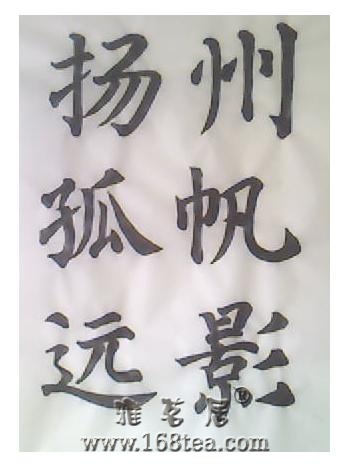 扬州
孤帆
远影
雅茗居®
www.168tea.com